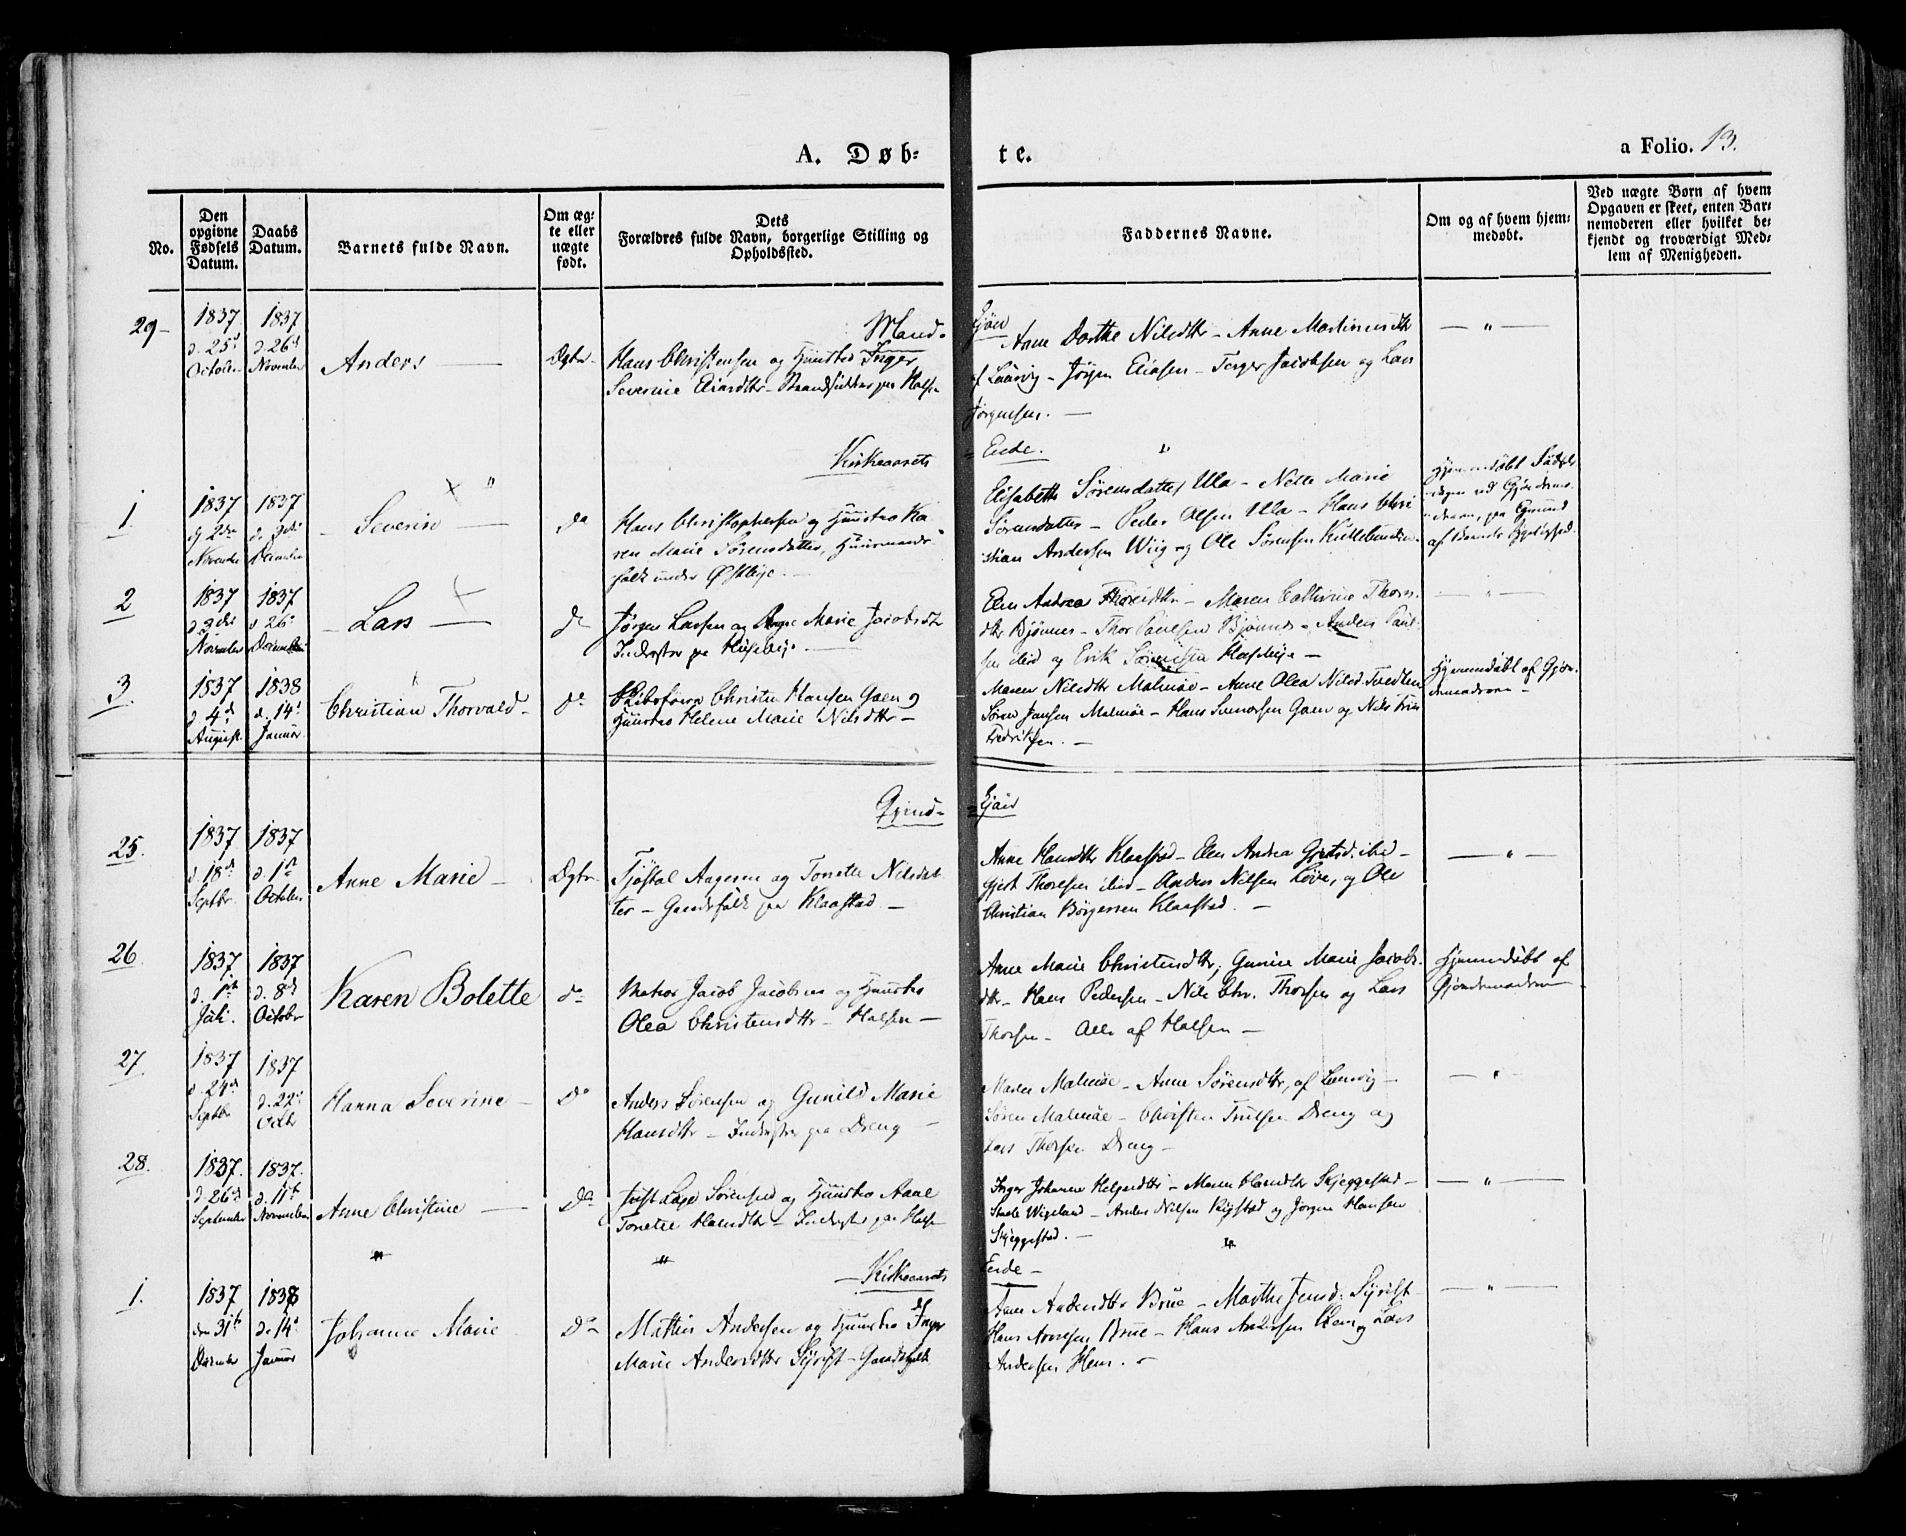 A. Døb-
te.
a Folio. 13.
No.
Den opgivne Fødsels Datum.
Daabs Datum.
Barnets fulde Navn.
Om ægte eller uægte født.
Dets Forældres fulde Navn, borgerlige Stilling og Opholdssted.
Faddernes Navne.
Om og af hvem hjemmedøbt.
Ved uægte Børn af hvem
Opgaven er skeet, enten Bar-
nemoderen eller hvilket be-
kjendt og troværdigt Med-
lem af Menigheden.
Mand-
kjøn
29 -
1837
d. 25d
October
1837
d. 26d
November
Anders
Ægte
Hans Christensen og Hustro Inger
Severine - Strandsidder paa Halsen
Anne Dorthe Nilsdtr - Anne Martinusdtr
af Laurvig - Jørgen Eliasen - Jacobsen og Lars
Jørgensen. -
Kirkeaarets
Ende.
1
1837
November
1837
Severin
do
Hans Christophersen og Hustro Ka-
ren Marie Sørensdatter, Huusmands-
folk under Østbye. -
Elisabeth Sørensdatter Ulla - Nette Marie
Sørensdatter - Peder Olsen Ulla - Hans Chri
stian Andersen Wiig og Ole Sørensen
Hjemmedøbt
2
1837
November
1837
d 26
December
Lars
do
Jørgen Larsen og Marie Jacobsdtr
Inderster paa Huseby. -
Elen Andrea - Maren Cathrine Thors-
dtr Bjønnes - Thor Paulsen Bjønnes - Anders Paul-
sen ibid og Erik Sørensen
3
1837
d 4d
August
1838
d. 14d
Januar
Christian Thorvald -
do
Christen Hansen Gaen og
Hustro Helene Marie Nilsdtr -
Maren Nilsdtr Malmøe - Anne Olea Nilsd. Tvedten
Søren Jansen Malmøe - Hans Gaen og Nils
Fredriksen. -
Hjemmedøbt af Gjor-
demoderen -
Qvind-
kjøn
25.
1837
d 18d
Septbr
1837
d. 1st
October
Anne Marie -
Ægte
Tjøstal Aagesen og Tonette Nilsdat-
ter - Gaardfolk paa Klaastad -
Anne Hansdtr Klaastad - Elen Andrea Gjertsd. ibid -
Gjert Thoresen ibid - Anders Nilsen Løve, og Ole
Christian Børgersen Klaastad. -
26
1837
d. 1st
Juli.
1837
d. 8d
October
Karen Bolette
do
Matros Jacob Jacobsen og Hustro
Olea Christensdtr - Halsen -
Anne Marie Christensdtr, Gunine Marie Jacobs-
dtr - Hans Pedersen - Nils Chr. Thorsen og Lars
Thorsen - Alle af Halsen -
Hjemmedøbt af
Gjordemoderen
27.
1837
d 24d
Septbr
1837
d. 22d
Octb
Hanna Severine -
Do
Anders Sørensen og Gunild Marie
Hansdtr - Inderster paa Dreng -
Maren Malmøe - Anne Sørensdtr, af Laurvig -
Søren Malmøe - Christen Trulsen Dreng og
Lars Thorsen Dreng -
28.
1837.
d 26d
September
1837.
d. 11t
November
Anne Christine
Do
Sørensen og Hustro Anne
Tonette Hansdtr - Inderster paa Halsen
Inger Johanne Helgesdtr - Maren Skjeggestad -
Wigeland - Anders Nilsen og Jørgen Hansen
Skjeggestad. -
Kirkeaarets
Ende -
1.
1837
den 31t
December
1838
d. 14d
Januar
Johanne Marie
Do
Mathis Andersen og Hustro Inger
Marie Andersdtr Syrist - Gaardfolk
Anne Andersdtr Brue - Marthe Jensd: Syrist
Hans Arvesen Brue - Hans Andersen Hem og Lars
Andersen Hem. -